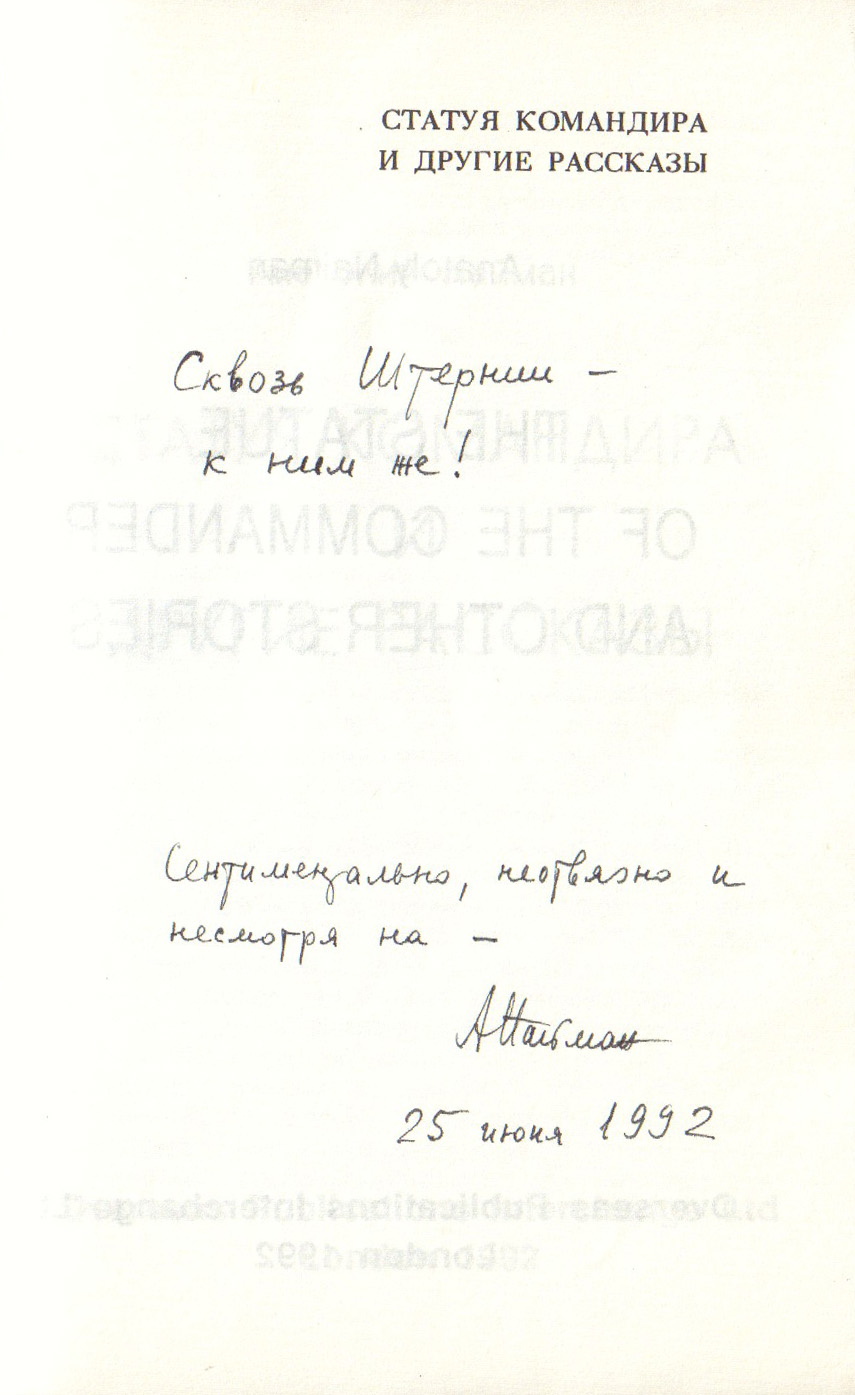 СТАТУЯ КОМАНДИРА
И ДРУГИЕ РАССКАЗЫ
Сквозь Штернии –
к ним же!
Сентиментально, неотвязно и
несмотря на –
АНайман
25 июня 1992